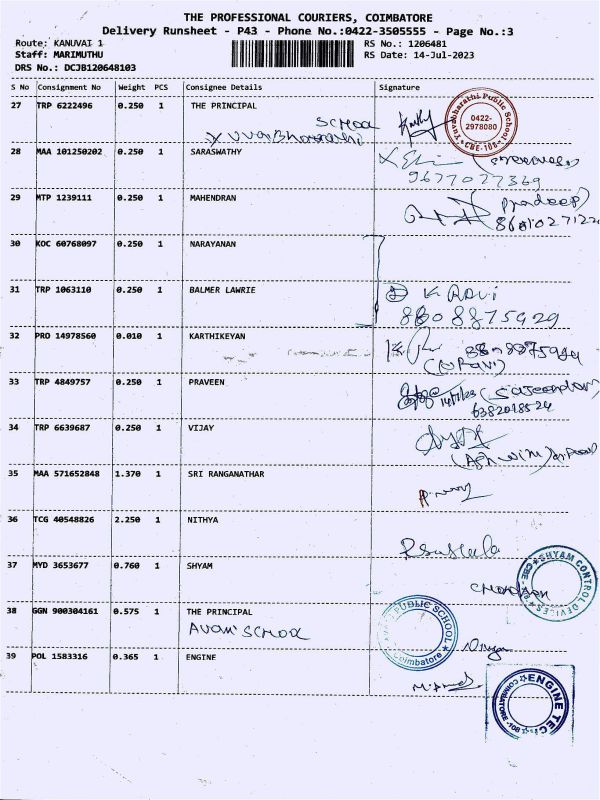 THE PROFESSIONAL COURIERS, COIMBATORE
Delivery Runsheet - P43 - Phone No.:0422-3505555 - Page No.:3
Route: KANUVAI 1
RS No.: 1206481
Staff: MARIMUTHU
RS Date: 14-Jul-2023
DRS No.: DCJB120648103
S No Consignment No Weight PCS Consignee Details Signature
27 TRP 6222496 0.250 1 THE PRINCIPAL
SCHOOL
Yuvabharathi Public School
0422-
2978080
CBE-108
28 MAA 101250202 0.250 1 SARASWATHY
9677027369
29 MTP 1239111 0.250 1 MAHENDRAN
(Pradeep)
30 KOC 60768097 0.250 1 NARAYANAN
31 TRP 1063110 0.250 1 BALMER LAWRIE
K Ravi
8808875929
32 PRO 14978560 0.010 1 KARTHIKEYAN
33 TRP 4849757 0.250 1 PRAVEEN
14/7/23
6382018524
34 TRP 6639687 0.250 1 VIJAY
35 MAA 571652848 1.370 1 SRI RANGANATHAR
36 TCG 40548826 2.250 1 NITHYA
37 MYD 3653677 0.760 1 SHYAM
SHYAM CONTROL DEVICES
CBE
38 GGN 900304161 0.575 1 THE PRINCIPAL
Avani SCHOOL
PUBLIC SCHOOL
Coimbatore
39 POL 1583316 0.365 1 ENGINE
ENGINE TEC
COIMBATORE-108